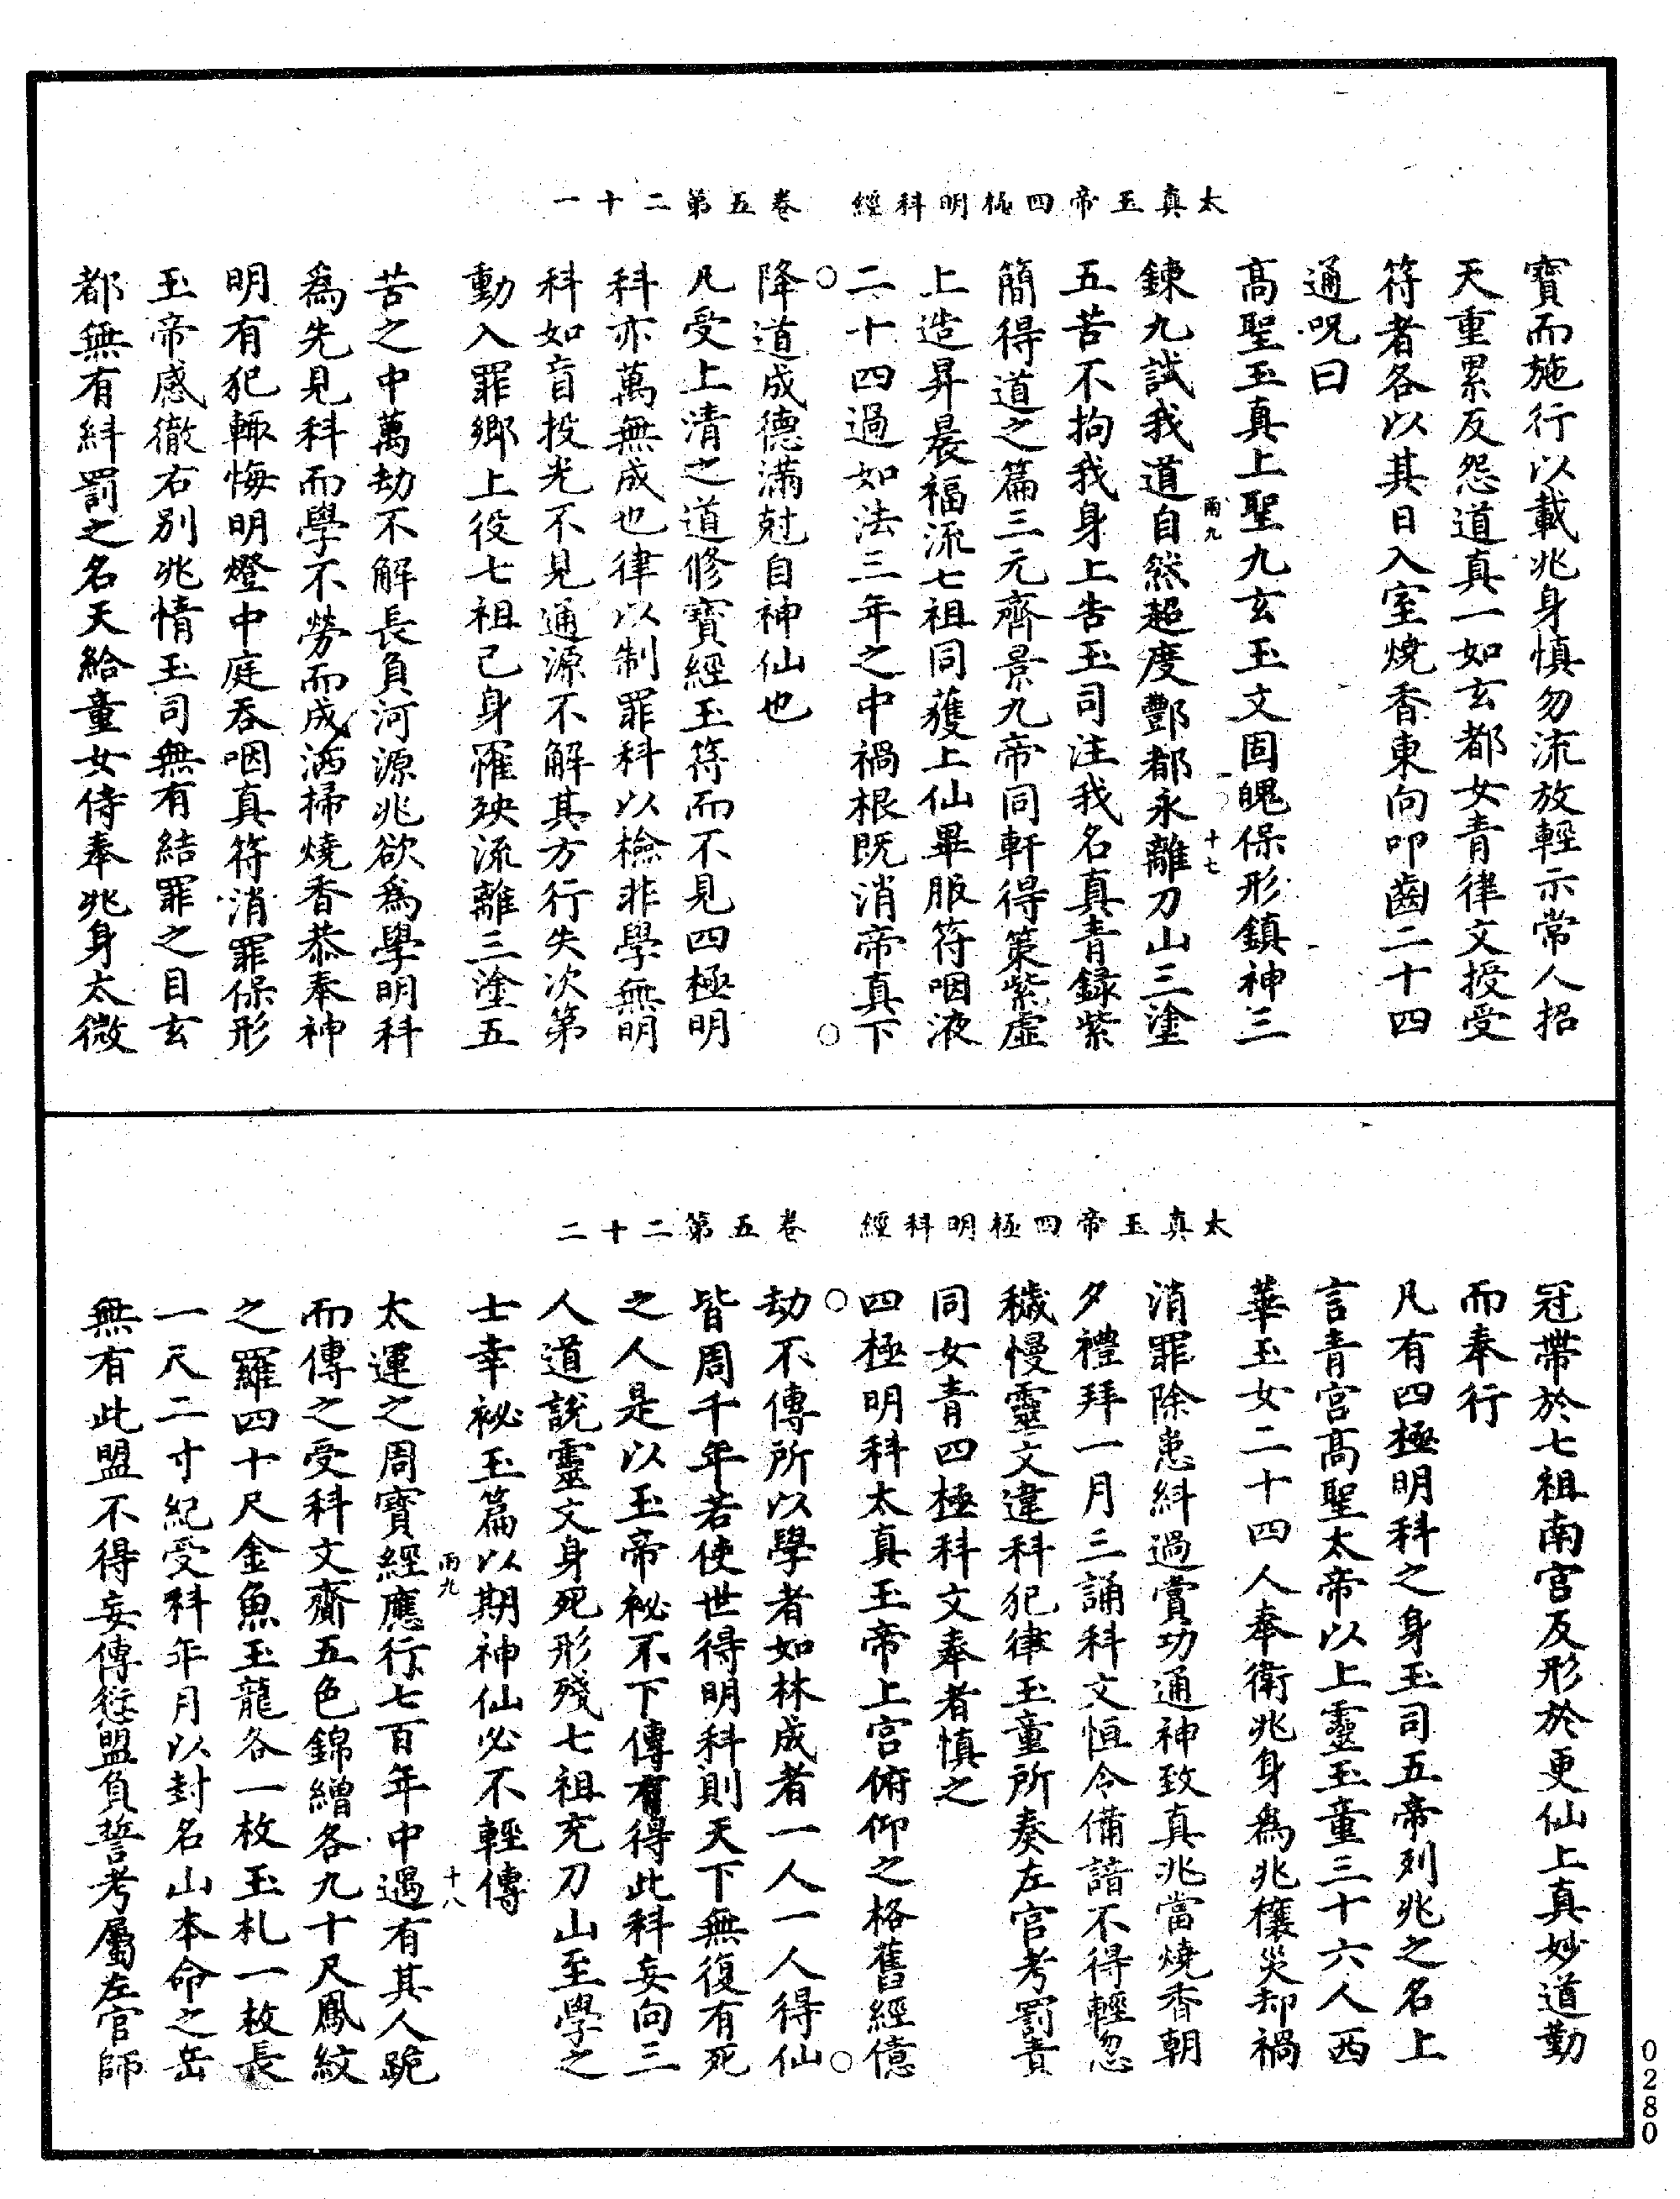 太真玉帝四極明科經　卷五第二十一
寶而施行以載兆身慎勿流放輕示常人招
天重累反怨道真一如玄都女青律文授受
符者各以其日入室燒香東向叩齒二十四
通呪曰
高聖玉真上聖九玄玉文固魄保形鎮神三
鍊九試我道自然超度酆都永離刀山三塗
雨九　十七
五苦不拘我身上告玉司注我名真青録紫
簡得道之篇三元齊景九帝同軒得策紫虛
上造昇晨福流七祖同獲上仙畢服符咽液
二十四過如法三年之中禍根既消帝真下
降道成德滿尅自神仙也
凡受上清之道修寶經玉符而不見四極明
科亦萬無成也律以制罪科以檢非學無明
科如盲投光不見通源不解其方行失次第
動入罪鄉上役七祖己身罹殃流離三塗五
苦之中萬劫不解長負河源兆欲爲學明科
爲先見科而學不勞而成洒掃燒香恭奉神
明有犯輙悔明燈中庭吞咽真符消罪保形
玉帝感徹右別兆情玉司無有結罪之目玄
都無有糾罰之名天給童女侍奉兆身太微
太真玉帝四極明科經　卷五第二十二
冠帶於七祖南宮反形於更仙上真妙道勤
而奉行
凡有四極明科之身玉司五帝列兆之名上
言青宮高聖太帝以上靈玉童三十六人西
華玉女二十四人奉衛兆身爲兆穰災却禍
消罪除患糾過賞功通神致真兆當燒香朝
夕禮拜一月三誦科文恒令備諳不得輕忽
穢慢靈文違科犯律玉童所奏左官考罰責
同女青四極科文奉者慎之
四極明科太真玉帝上宮俯仰之格舊經億
劫不傳所以學者如林成者一人一人得仙
皆周千年若使世得明科則天下無復有死
之人是以玉帝祕不下傳有得此科妄向三
人道說靈文身死形殘七祖充刀山至學之
士幸祕玉篇以期神仙必不輕傳
雨九　十八
太運之周寶經應行七百年中遇有其人跪
而傳之受科文齎五色錦繒各九十尺鳳紋
之羅四十尺金魚玉龍各一枚玉札一枚長
一尺二寸紀受科年月以封名山本命之岳
無有此盟不得妄傳愆盟負誓考屬左官師
0280